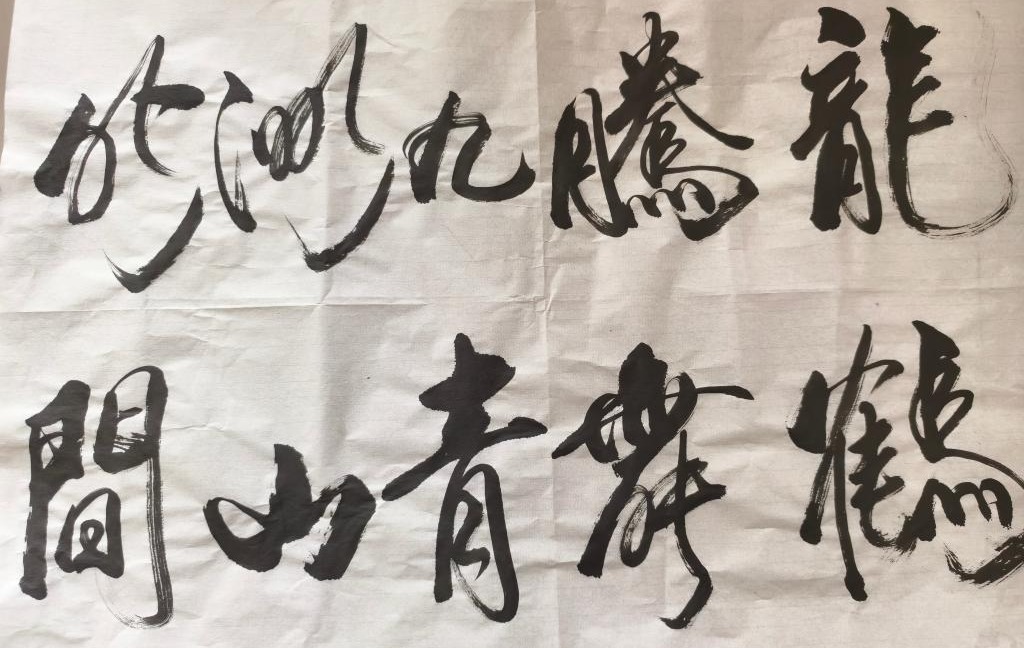 龍騰九洲外
鶴舞青山間